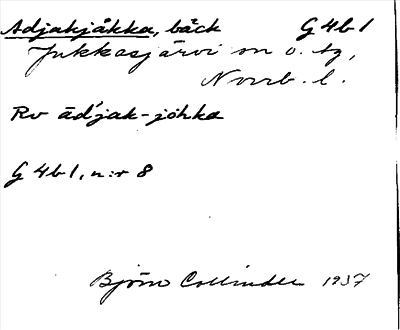 Adjakjåkka, bäck G 4 b 1
Jukkasjärvi sn o. tg,
Norrb. l.
Rv ād́jak-jòhka
G 4 b 1, n:r 8
Björn Collinder 1937